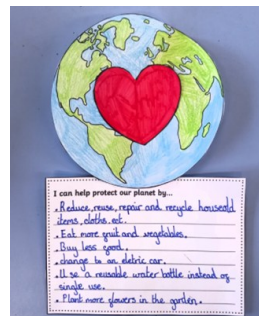 I can help protect our planet by...
• Reduce, reuse, repair and recycle household
items, cloths, ect.
• Eat more fruit and vegetables.
• Buy less food.
• change to an eletric car.
• Use a reusable water bottle instead of
single use.
• Plant more flowers in the garden.